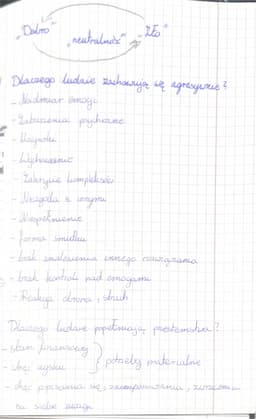 „Dobro" „neutralność" „Zło"
Dlaczego ludzie zachowują się agresywnie?
- Nadmiar emocji
- Zaburzenia psychiczne
- Używki
- Wychowanie
- Zakrycie kompleksów
- Niezgoda z innymi
- Niespełnienie
- forma smutku
- brak znalezienia innego rozwiązania
- brak kontroli nad emocjami
- Reakcja obronna, strach
Dlaczego ludzie popełniają przestępstwa?
- stan finansowy
- chęć zysku } potrzeby materialne
- chęć popisania się, zaimponowania, zwrócenia
na siebie uwagi